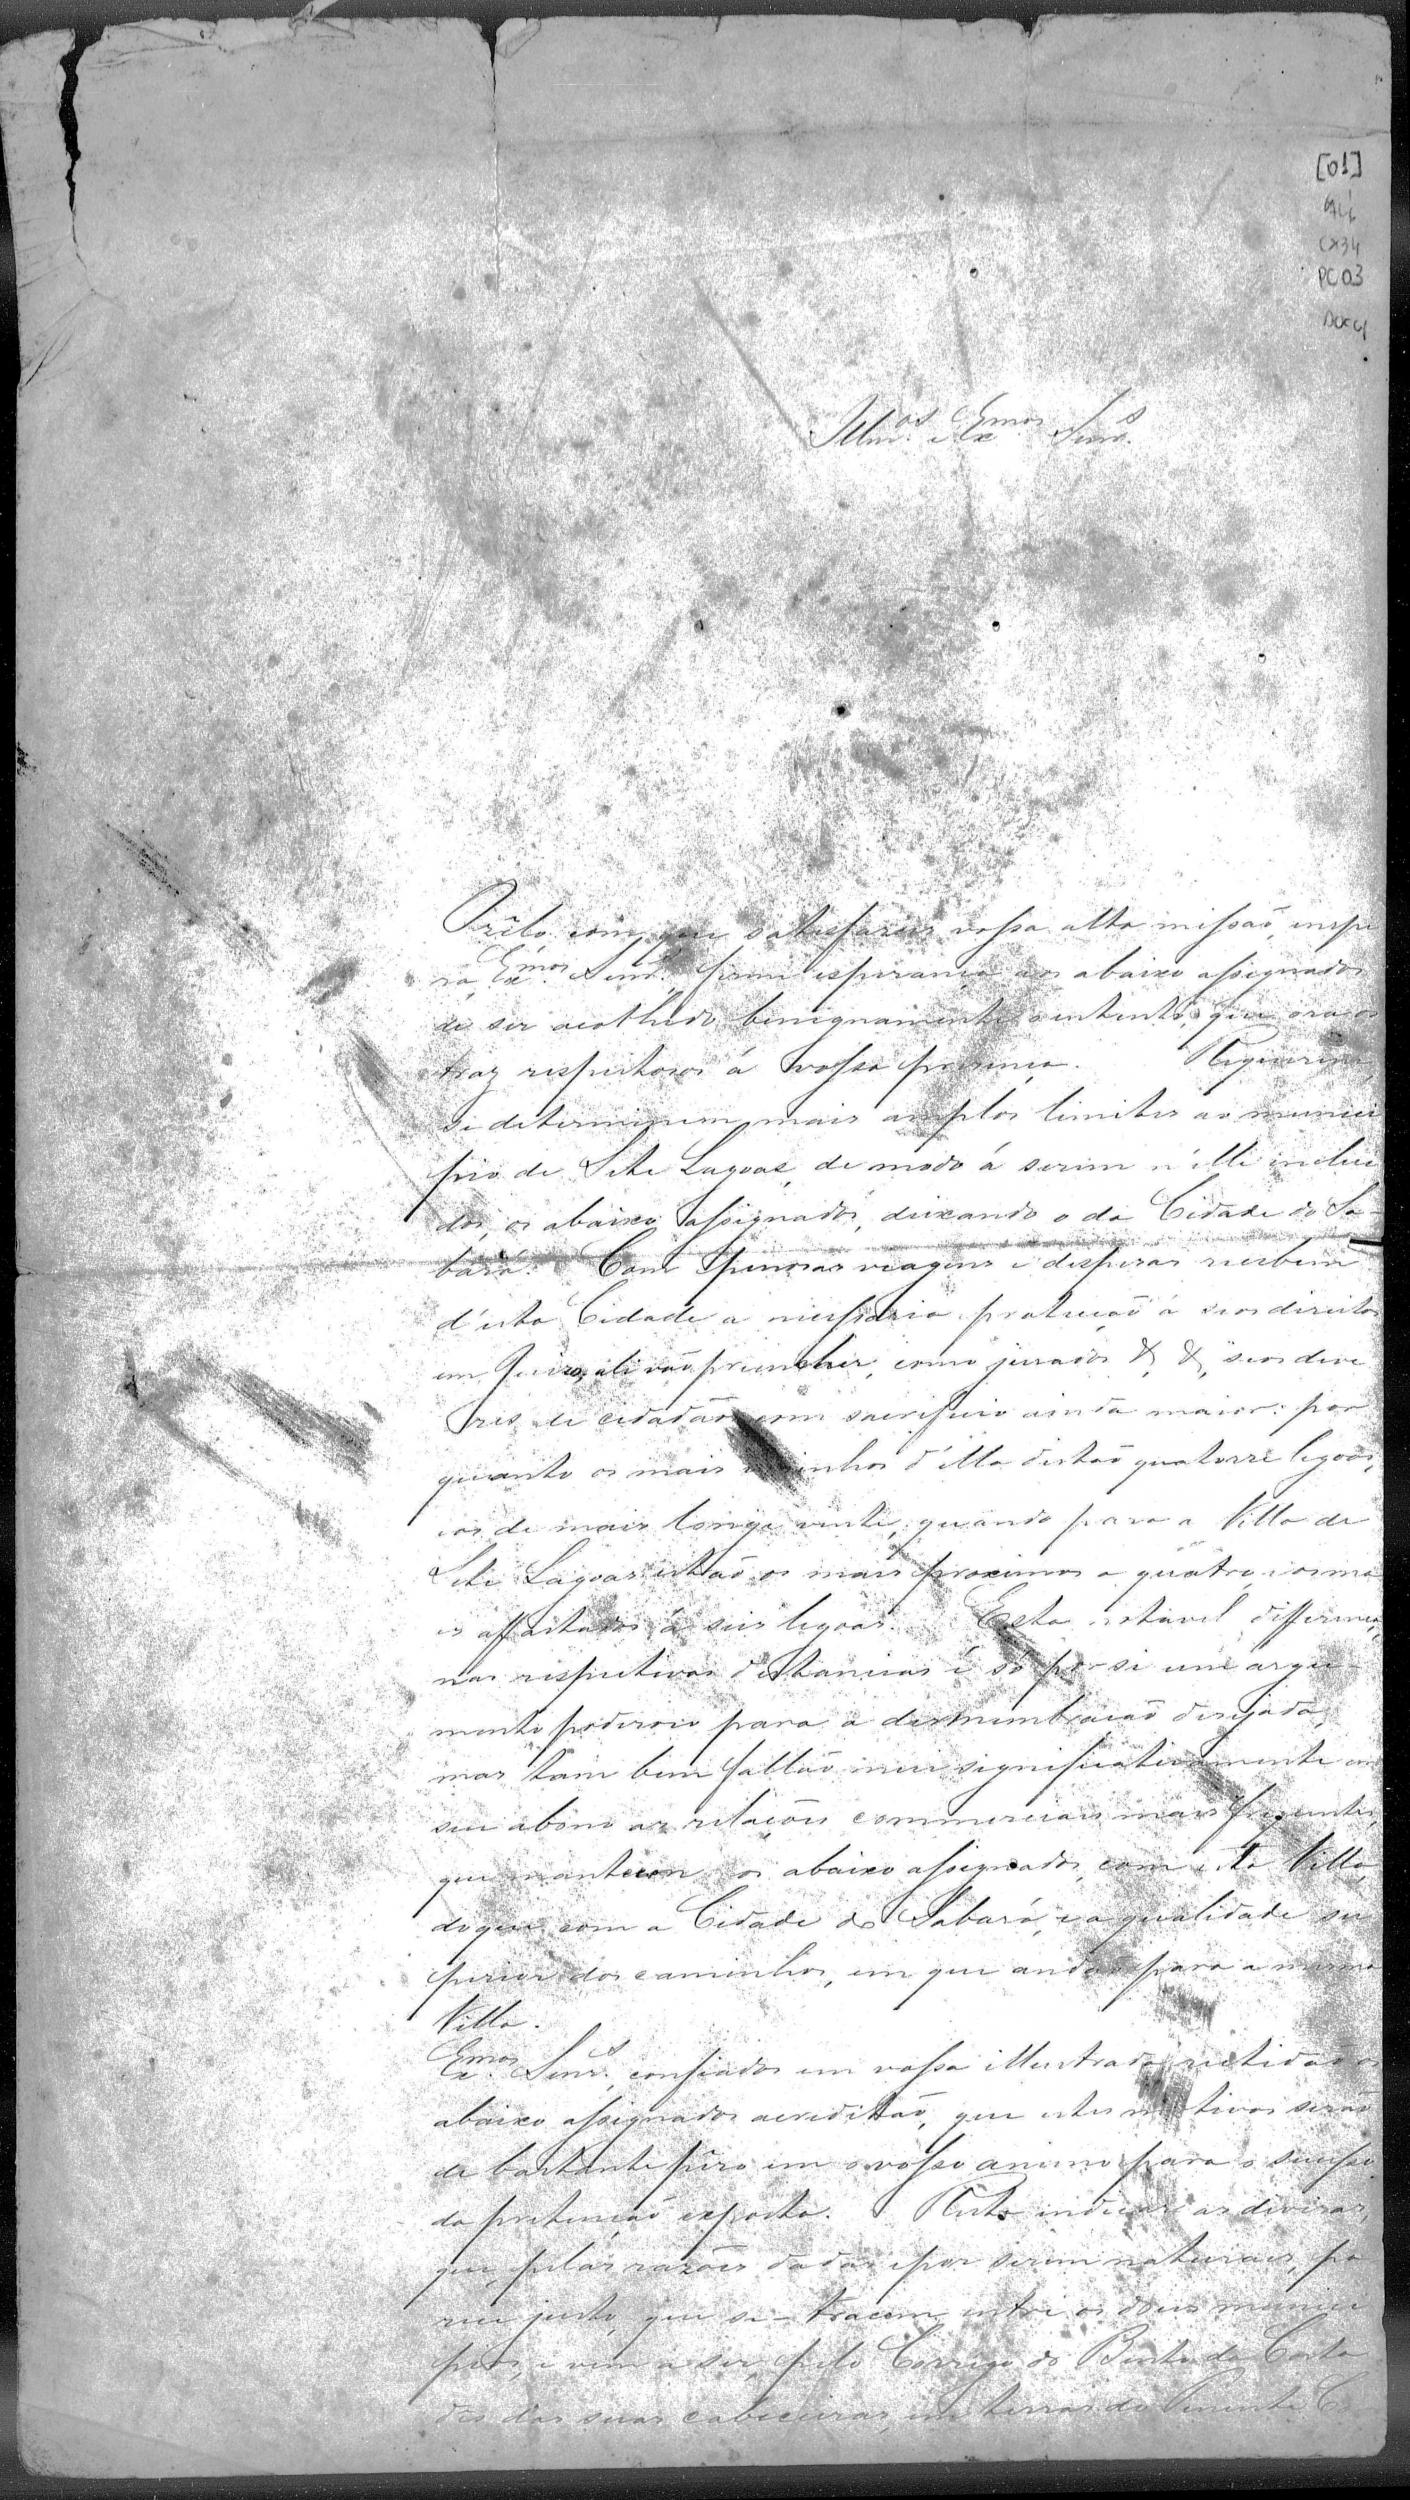 [01]
CX34
PC03
Doc 4
Illm.os e Ex.mos Senr.s
O zêlo com que satisfazeis vossa alta missaõ, inspi
ra, Ex.mos Senr.s, firme esperança aos abaixo assignados
de ser acolhido benignamente o intento, que ora os
traz respeitosos á vossa presença. Requerem,
se determinem mais amplos limites ao munici
pio de Sete Lagoas, de modo á serem n'elle inclui
dos, os abaixo assignados, deixando o da Cidade do Sa-
bará. Com penosas viagens e despezas recebem
d'esta Cidade a necessaria protecçaõ á seos direitos
em Juizo, ali vaõ preencher, como jurados &, &, seos deve
res de cidadãos com sacrificio ainda maior: por
quanto os mais visinhos d'ella distaõ quatorze legoas,
e os de mais longe vinte, quando para a Villa de
Sete Lagoas estaõ os mais proximos a quatro, e os ma
is affastados á seis legoas. Esta notavel differença
nas respectivas distancias é só por si um argu-
mento poderoso para a desmembraçaõ desejada,
mas tam bem fallaõ mui significativamente em
seu abono as relações commerciais mais frequentes,
que mantem os abaixo assignados, com esta Villa,
do que com a Cidade do Sabará, e a qualidade su
perior dos caminhos, em que andaõ para a mesma
Villa.
Ex.mos Senr.s, confiados em vossa illustrada rectidaõ os
abaixo assignados acreditaõ, que estes motivos seraõ
de bastante pêzo em o vosso animo para o successo
da pretençaõ exposta. Resta indicar as divisas,
que, pelas razões dadas e por serem naturais, pa
rece justo, que se - tracem entre os dous munici
pios, e vem a ser, pelo Corrego do Bento da Costa
des das suas cabeceiras, em terras do Tenente